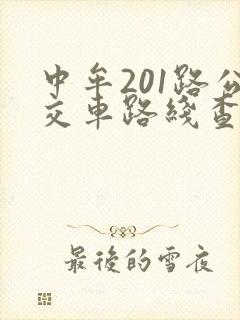 中牟201路公
交車路綫查
最後的雪夜